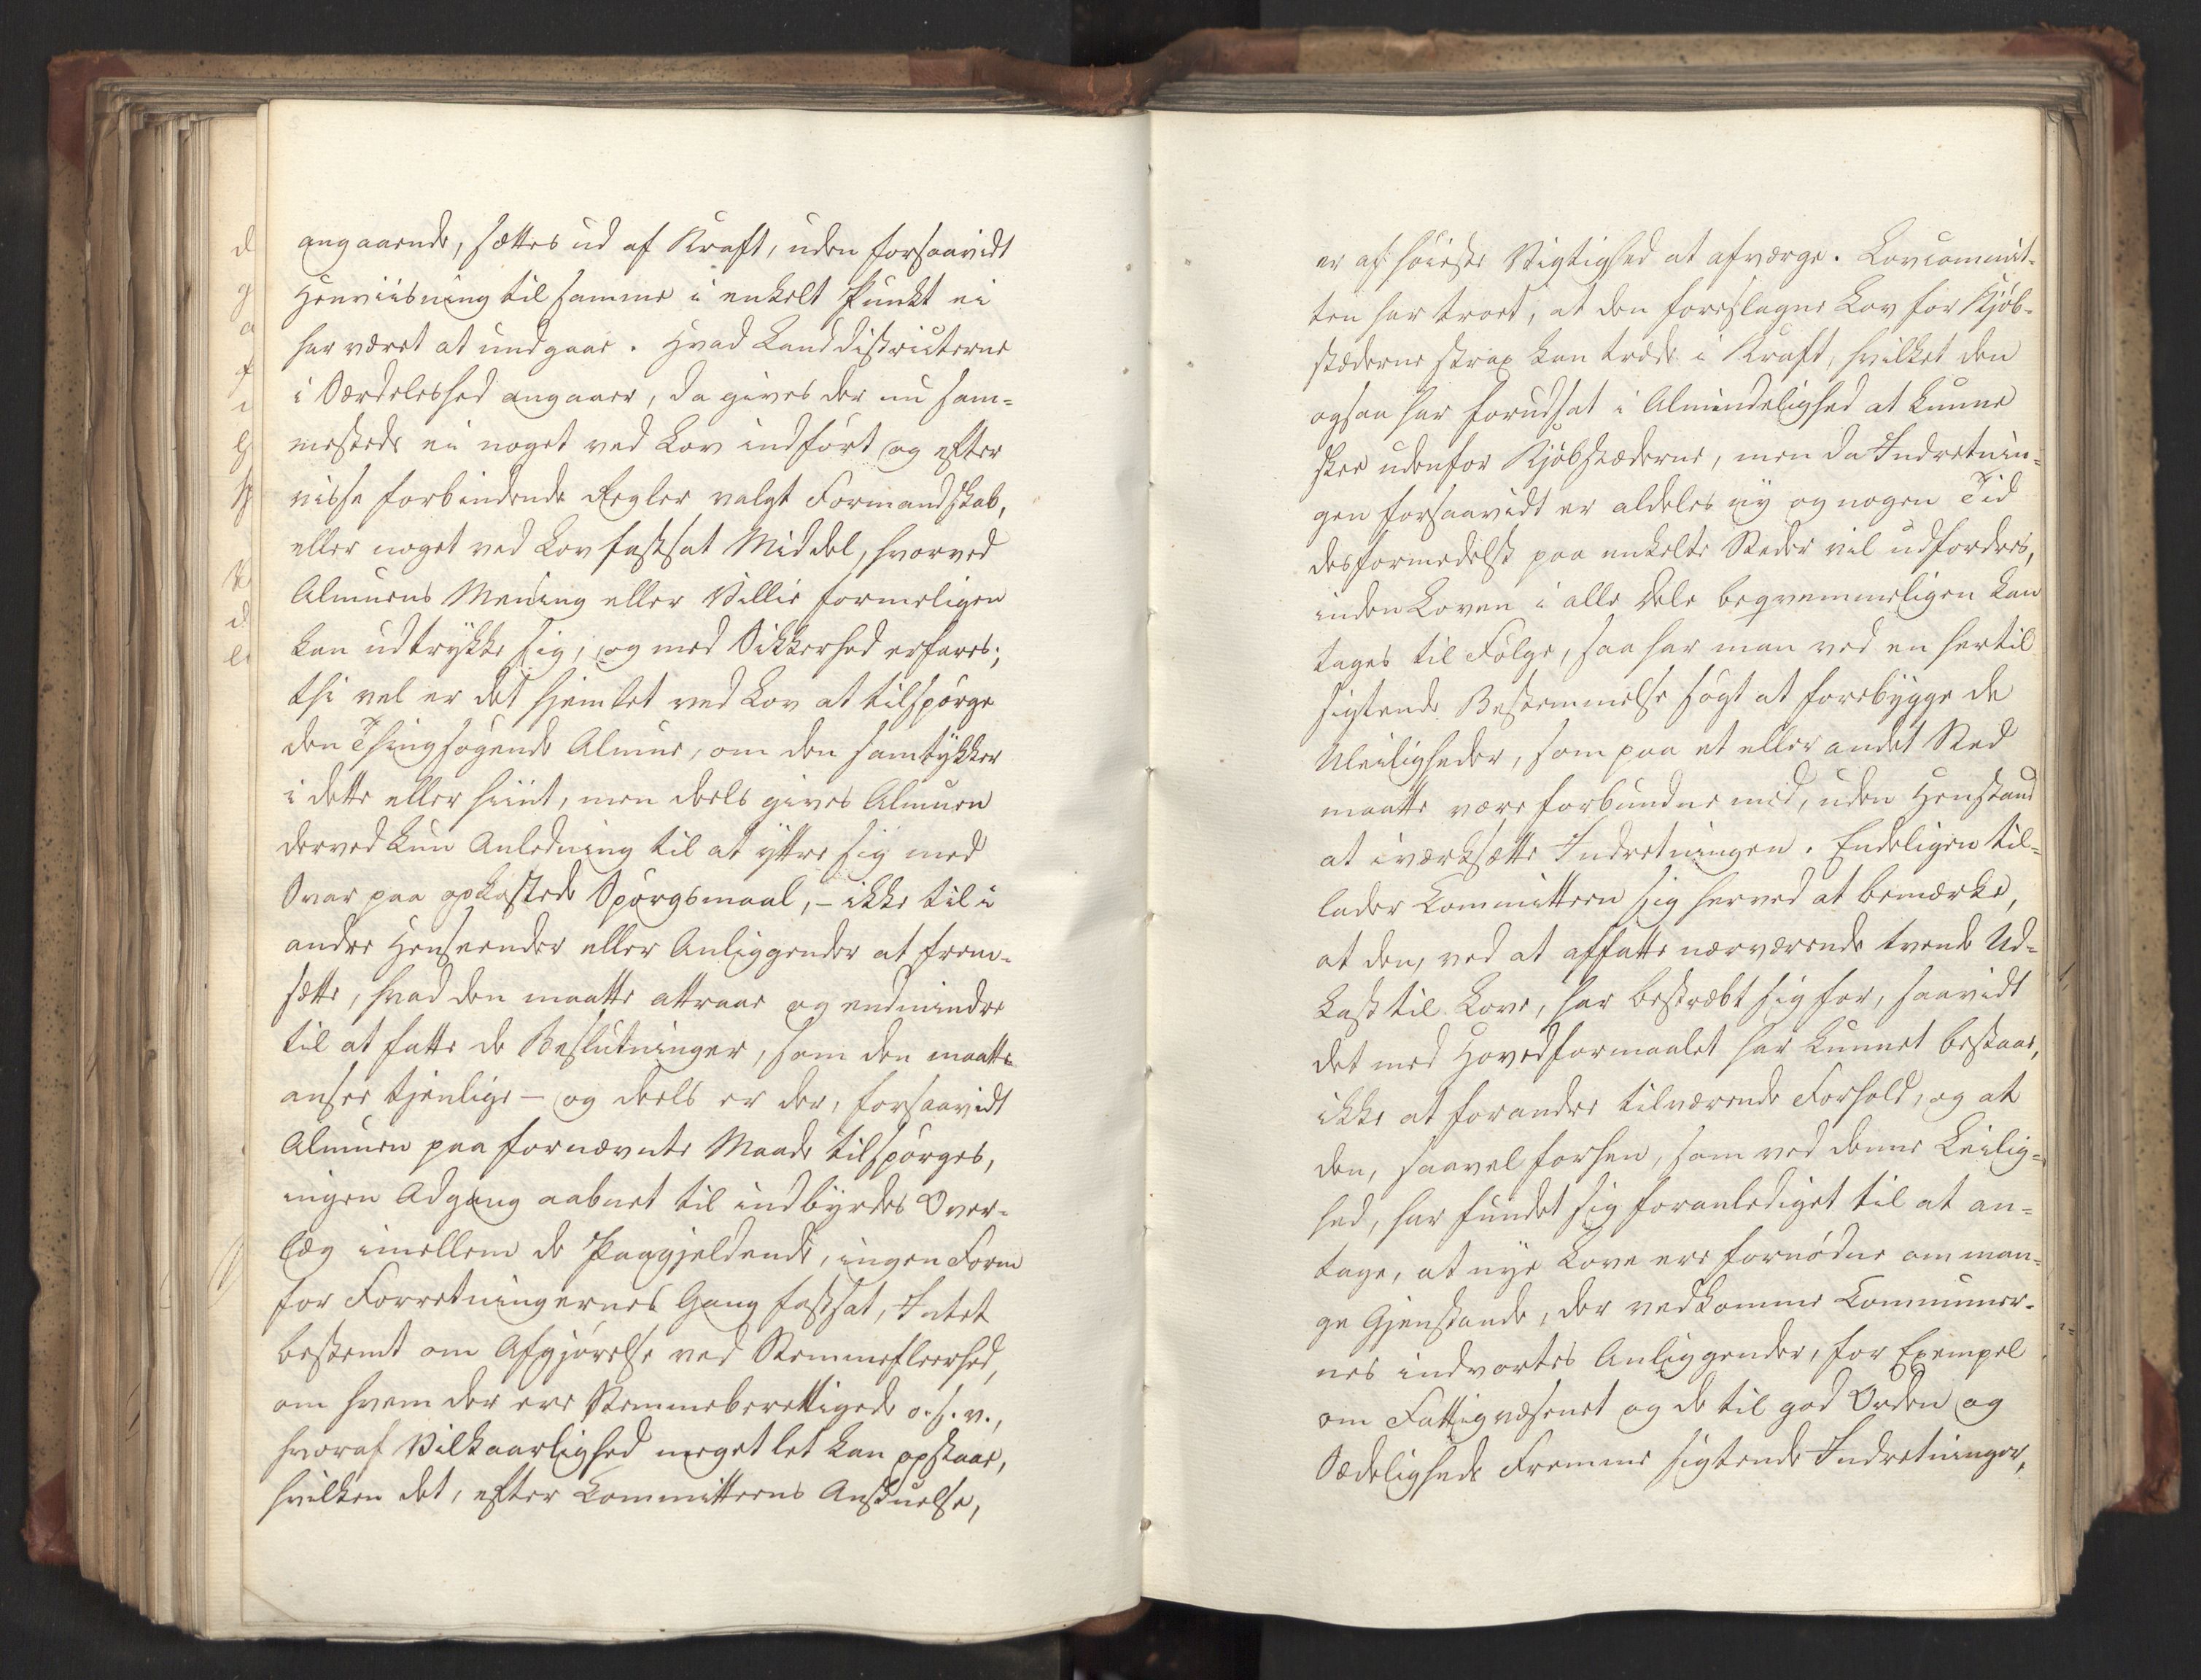 angaaende, sættes ud af Kraft, uden forsaavidt
Henviisning til samme i enkelt Punkt ei
har været at undgaae. Hvad Landdistricterne
i Særdeleshed angaaer, da gives der nu sam-
mesteds ei noget ved Lov indført og efter
visse forbindende Regler valgt Formandskab,
eller noget ved Lov fastsat Middel, hvorved
Almuens Mening eller Villie formeligen
kan udtrykke sig, og med Sikkerhed erfares;
thi vel er det hjemlet ved Lov at tilspørge
den Thingsøgende Almue, om den samtykker
i dette eller hiint, men deels gives Almuen
derved kun Anledning til at yttre sig med
Svar paa opkastede Spørgsmaal, – ikke til i
andre Henseender eller Anliggender at frem-
sætte, hvad den maatte attraae og endmindre
til at fatte de Beslutninger, som den maatte
ansee tjenlige – og deels er der, forsaavidt
Almuen paa fornævnte Maade tilspørges,
ingen Adgang aabnet til indbyrdes Over-
læg imellem de Paagjeldende, ingen Form
for Forretningernes Gang fastsat, Intet
bestemt om Afgjørelse ved Stemmefleerhed,
om hvem der ere Stemmeberettigede o. s. v.,
hvoraf Vilkaarlighed meget let kan opstaae,
hvilken det, efter Committeens Anskuelse,
er af høieste Vigtighed at afværge. Lovcommit-
teen har troet, at den foreslagne Lov for Kjøb-
stæderne strax kan træde i Kraft, hvilket den
ogsaa har forudsat i Almindelighed at kunne
skee udenfor Kjøbstæderne, men da Indretnin-
gen forsaavidt er aldeles ny og nogen Tid
desformedelst paa enkelte Steder vil udfordres,
inden Loven i alle Dele beqvemmeligen kan
tages til Følge, saa har man ved en hertil
sigtende Bestemmelse søgt at forebygge de
Uleiligheder, som paa et eller andet Sted
maatte være forbundne med, uden Henstand
at iværksætte Indretningen. Endeligen til-
lader Committeen sig herved at bemærke,
at den, ved at affatte nærværende tvende Ud-
kast til Love, har bestræbt sig for, saavidt
det med Hovedformaalet har kunnet bestaae,
ikke at forandre tilværende Forhold, og at
den, saavel forhen, som ved denne Leilig-
hed, har fundet sig foranlediget til at an-
tage, at nye Love ere fornødne om man-
ge Gjenstande, der vedkomme Communer-
nes indvortes Anliggender, for Exempel
om Fattigvæsenet og de til god Orden og
Sædeligheds Fremme sigtende Indretninger,